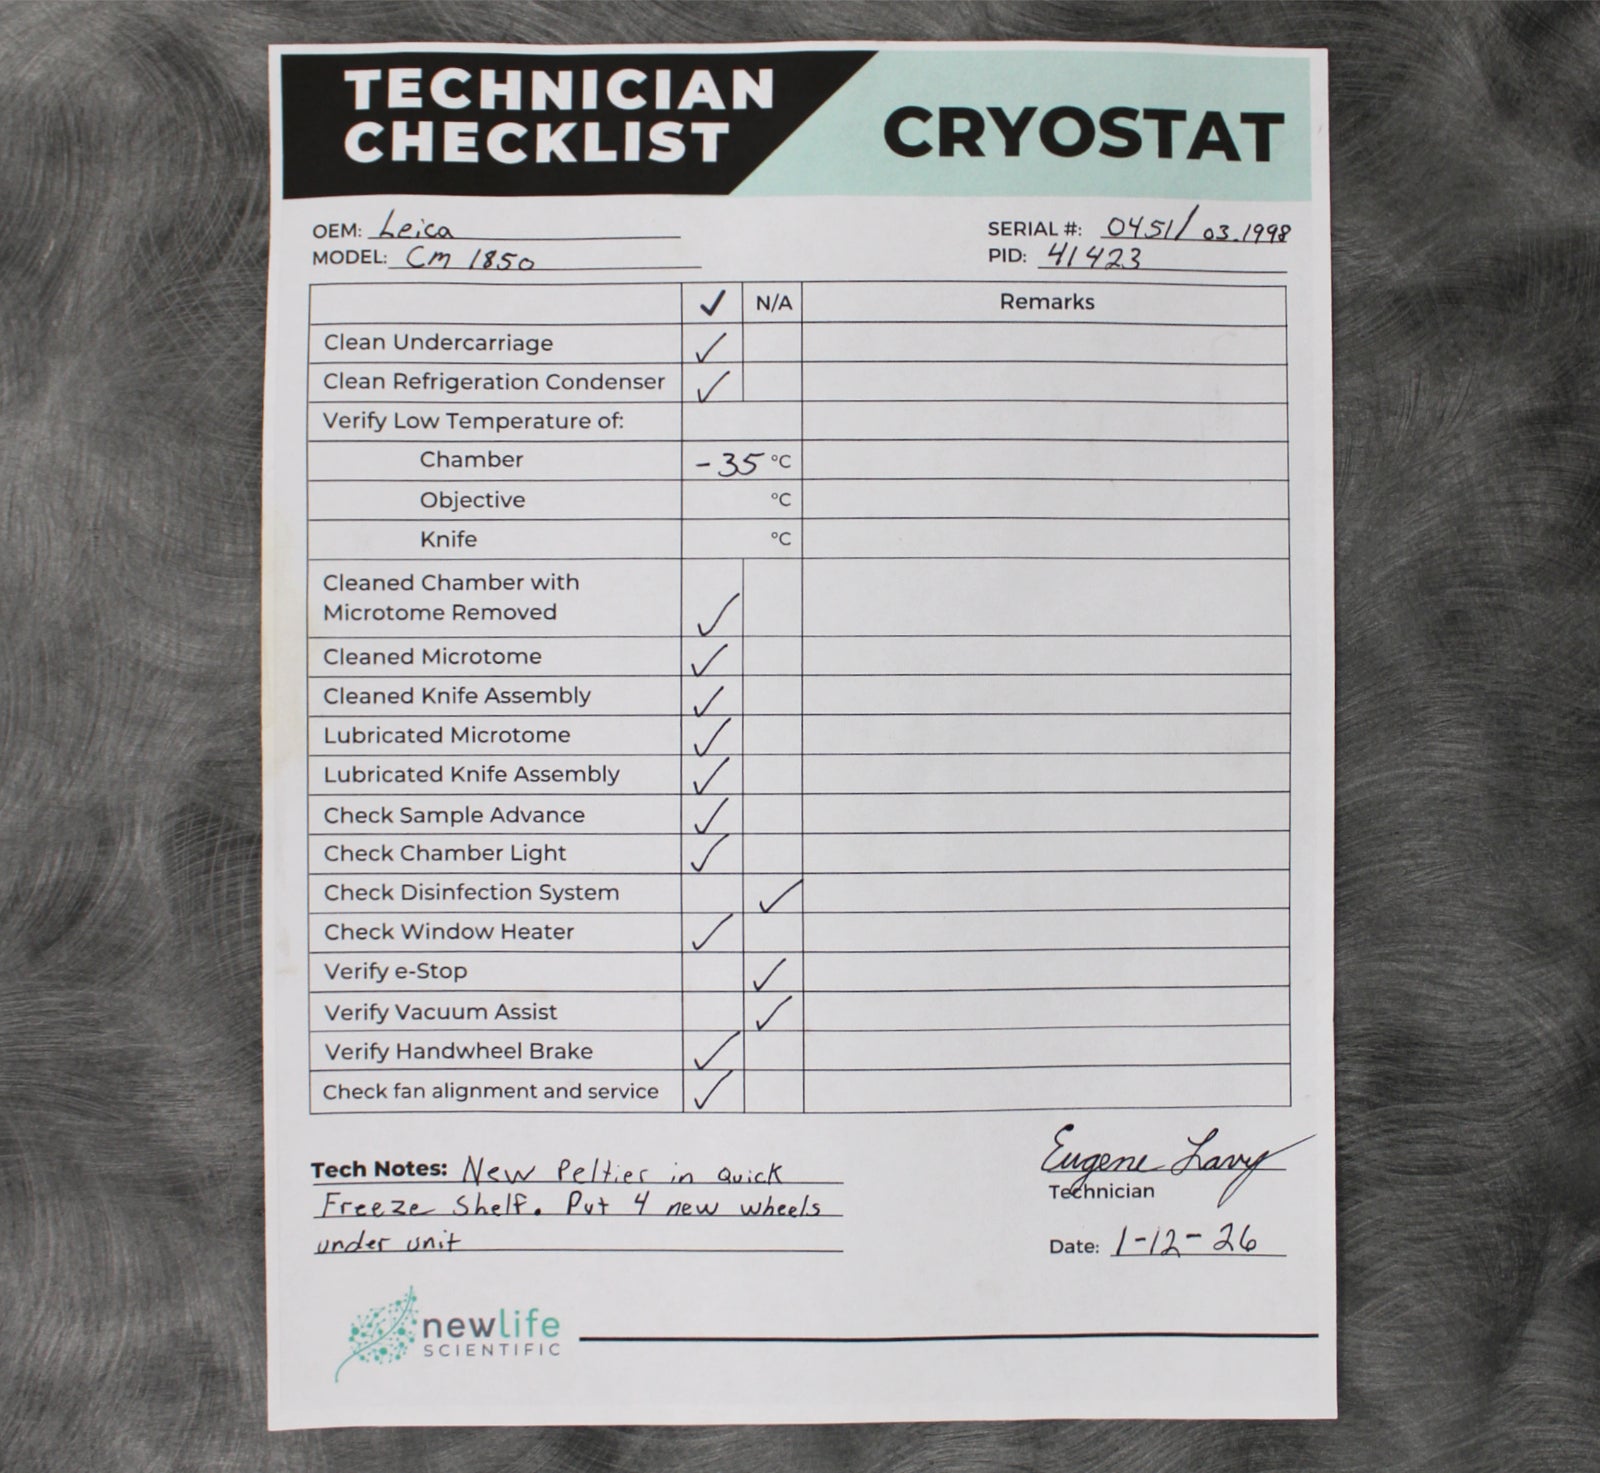 TECHNICIAN
CHECKLIST
CRYOSTAT
OEM: Leica
MODEL: Cm 1850
SERIAL #: 0451/03.1998
PID: 41423
✓ N/A Remarks
Clean Undercarriage ✓
Clean Refrigeration Condenser ✓
Verify Low Temperature of:
Chamber -35 °C
Objective °C
Knife °C
Cleaned Chamber with
Microtome Removed ✓
Cleaned Microtome ✓
Cleaned Knife Assembly ✓
Lubricated Microtome ✓
Lubricated Knife Assembly ✓
Check Sample Advance ✓
Check Chamber Light ✓
Check Disinfection System ✓
Check Window Heater ✓
Verify e-Stop ✓
Verify Vacuum Assist ✓
Verify Handwheel Brake ✓
Check fan alignment and service ✓
Tech Notes: New Peltier in Quick
Freeze Shelf. Put 4 new wheels
under unit
Eugene Lavy
Technician
Date: 1-12-26
newlife
SCIENTIFIC